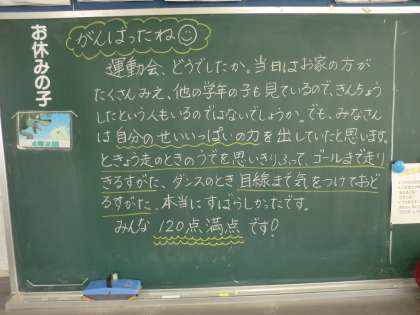 お休みの子
がんばったね
運動会、どうでしたか。当日はお家の方が
たくさんみえ、他の学年の子も見ているので、きんちょう
したという人もいるのではないでしょうか。でも、みなさん
は自分のせいいっぱいの力を出していたと思います。
ときょう走のときのうでを思いきりふって、ゴールまで走り
きるすがた、ダンスのとき目線まで気をつけておど
るすがた、本当にすばらしかったです。
みんな 120点満点です!